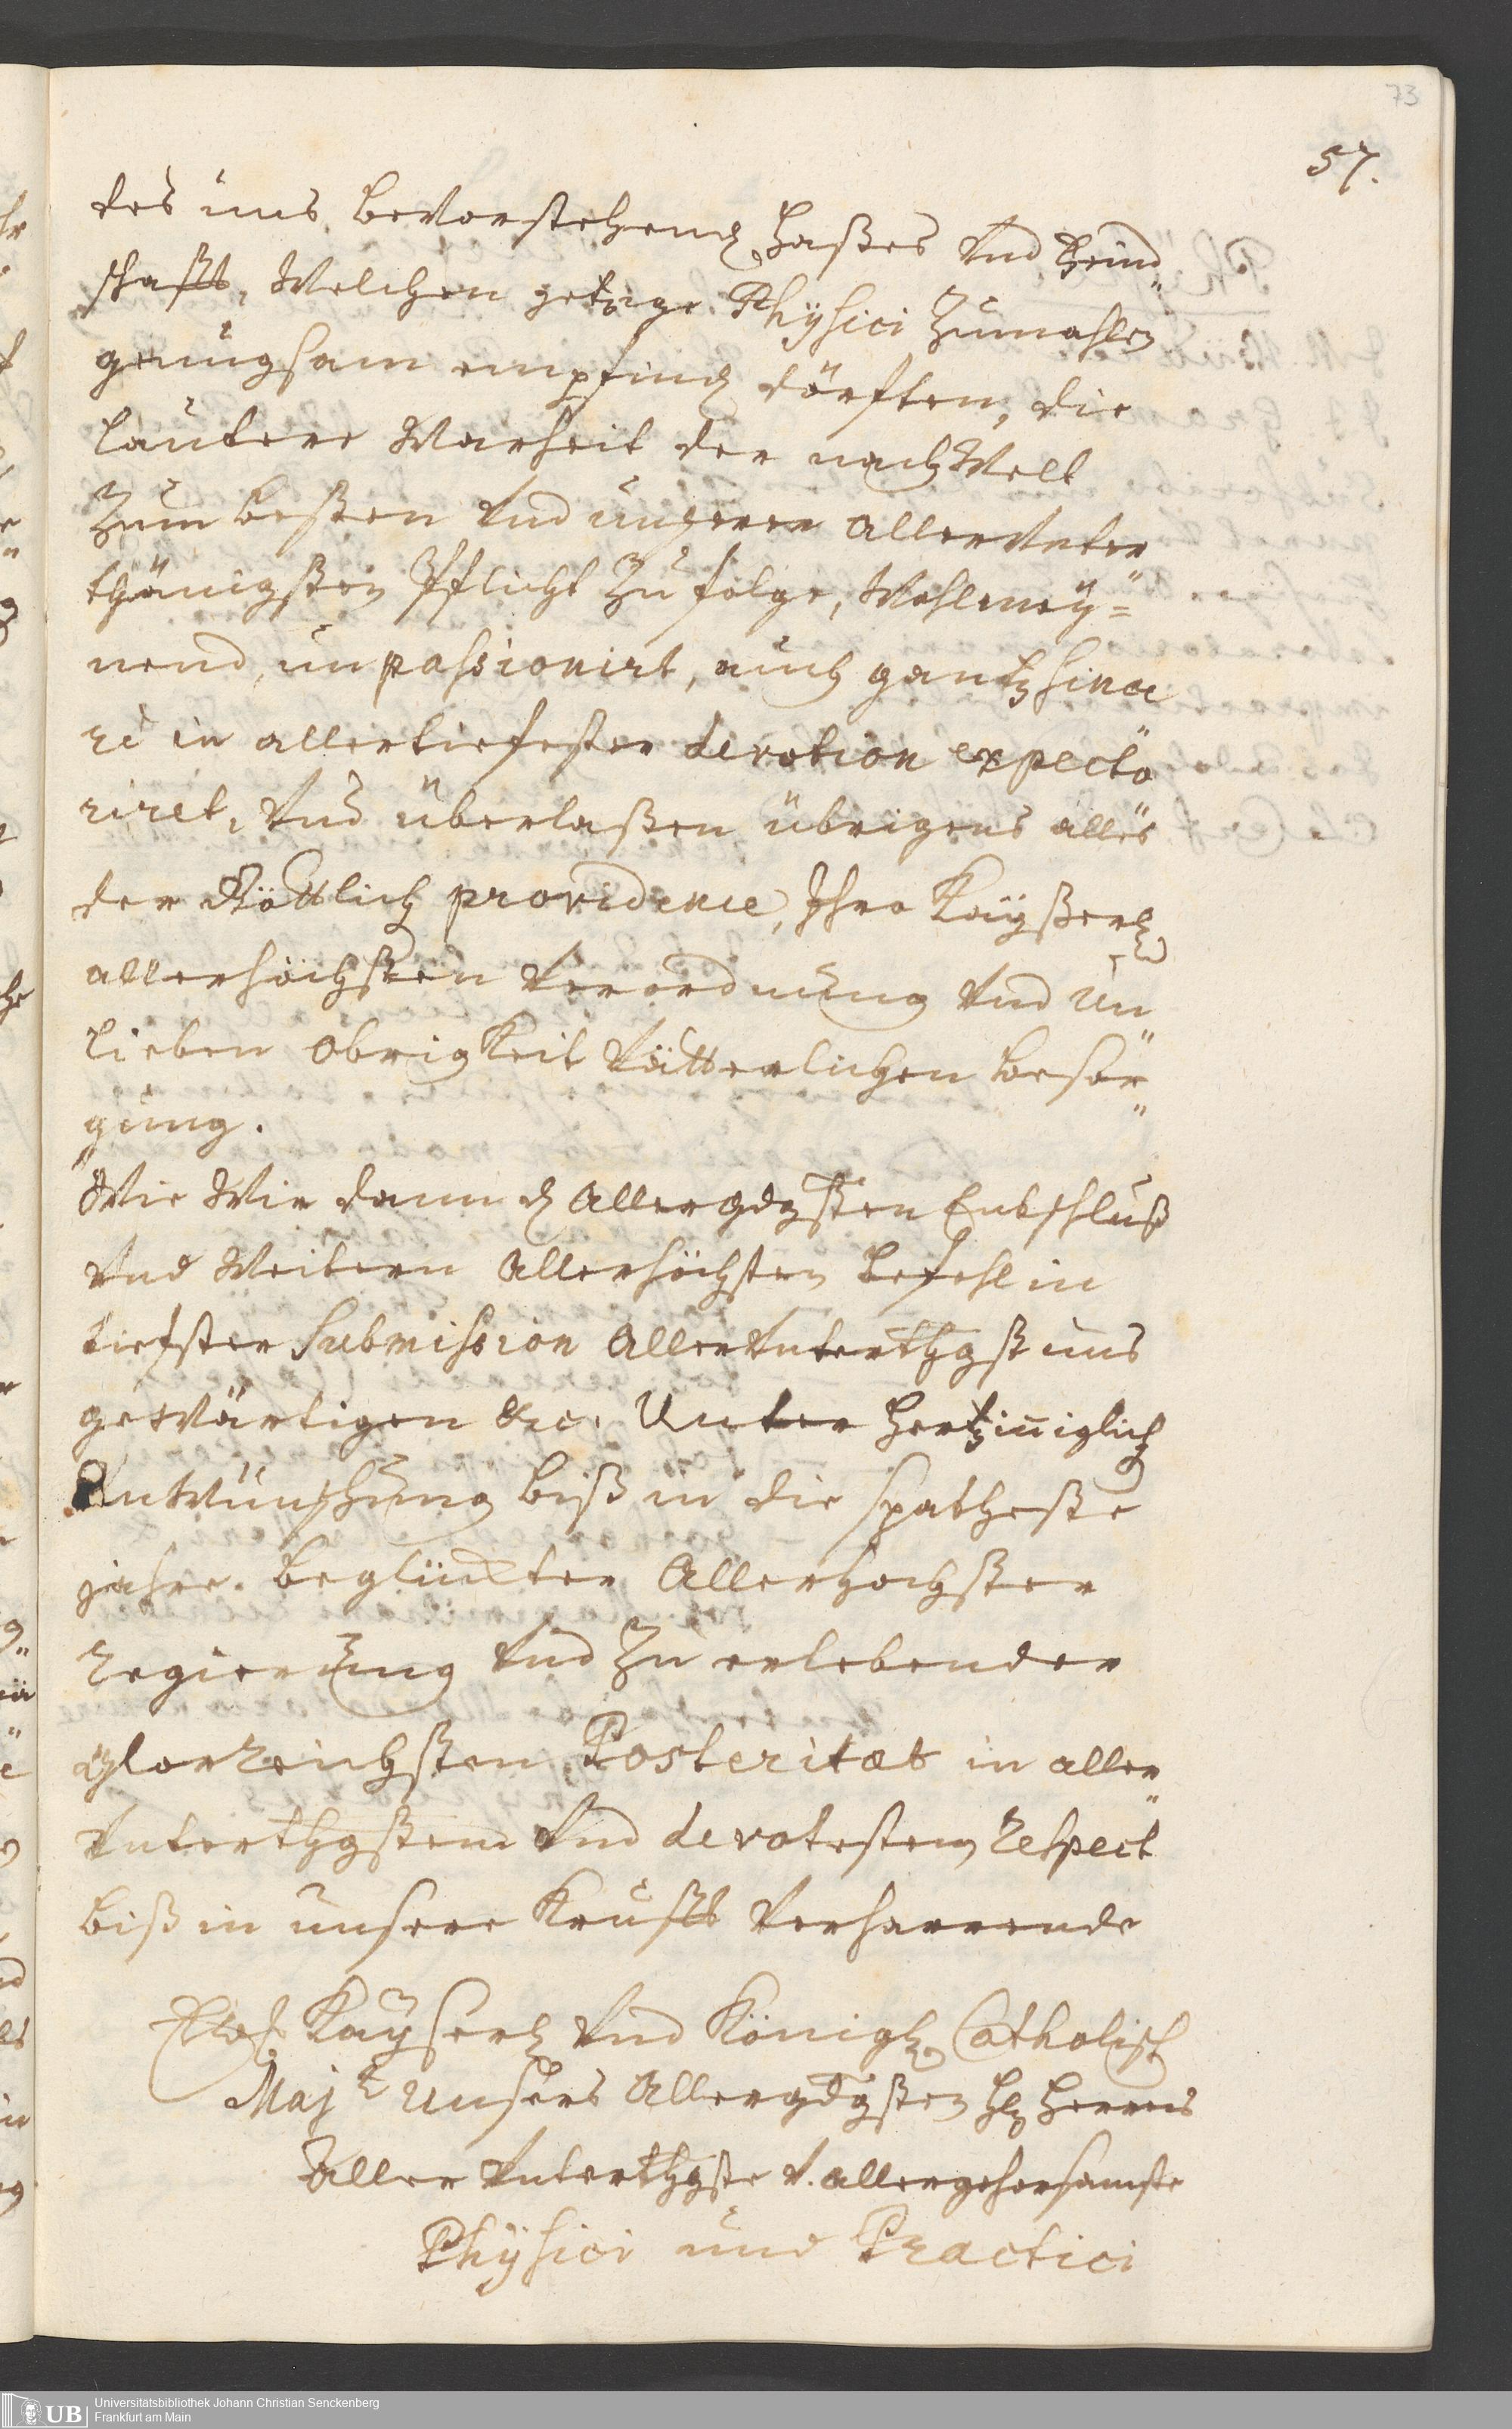 73
57.
des uns bevorstehend Haßes und Feind„
schafft, Welchen zeitige Physici Zumahlen
genugsam empfind dörfften, die
lautere Warheit der nachWelt
Zum besten Vnd unserer allerVnter„
thänigsten Pflicht Zu folge, Wohlmey=
nend, unpassionirt, auch gantz since„
re in allertiefester devotion expecto„
riret, Vnd überlaßen übrigens alles
der Göttlich providence, Ihro Kayßerl
allerhöchsten Verordnung Vnd Un„
lieben Obrigkeit Vätterlichen besor„
gung.
Wie Wir dann d Allergdgsten Entschluß
Vnd Weitern Allerhöchsten befehl in
tiefster Submission AllerVnterthgst uns
geWärtigen &c. Unter Hertziniglich
AnWünschung biß in die spatheste
jahre. beglückter Allerhochster
Regierung Vnd Zu erlebender
Glorreichsten Posteritæt in aller„
Vnterthgstem Vnd devotestem Respect
biß in unsere Krufft Verharrende
Ew. Kayserl Vnd Königl. Catholisch
Majt Unsers Allergdgsten H Herrens
Aller Vnterthgste V. allergehorsamste
Physici und Practici
UB
Universitätsbibliothek Johann Christian Senckenberg
Frankfurt am Main